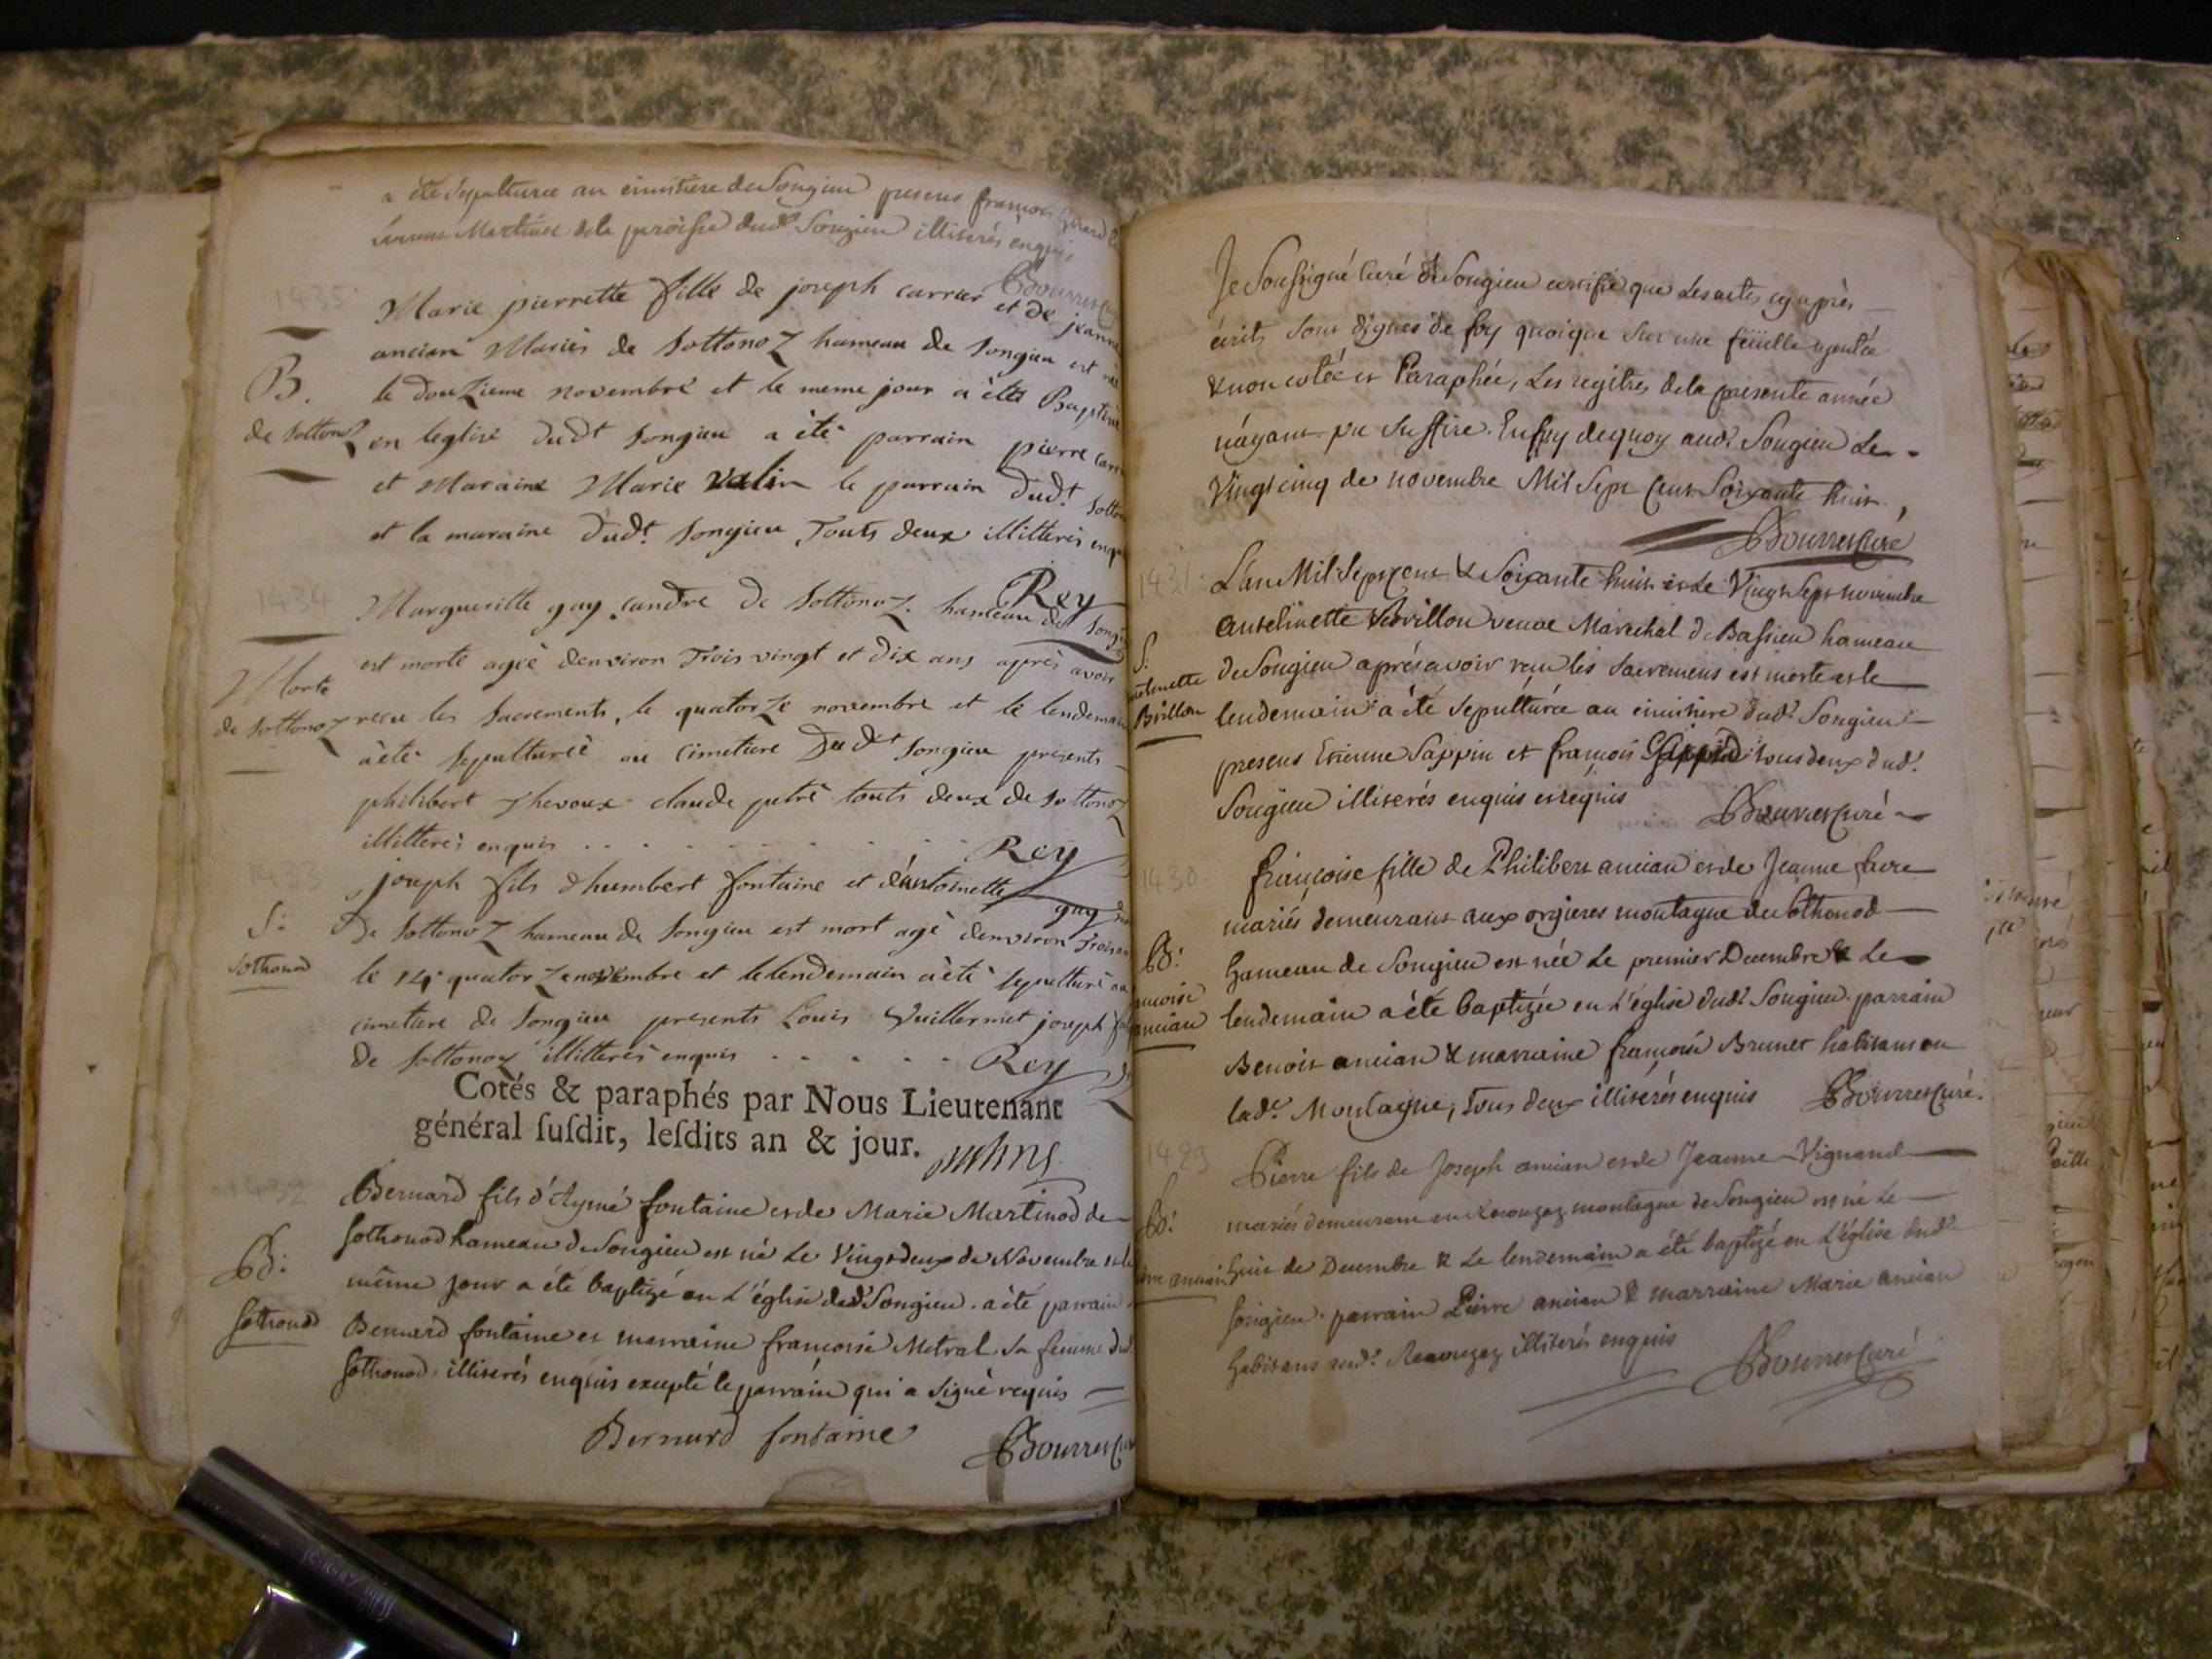 a été sepulturée au cimitiere de Songieu presens francois
Martinet de la paroisse dud.t Songieu illiterés enquis
Bourrescuré
1435
Marie pierrette fille de joseph carrier et de jeanne
ancian Mariés de Sottonoz hameau de Songieu est née
B.
le douzieme novembre et le meme jour a étéé Baptisée
de Sottonoz
en leglise dud.t Songieu a été parrain pierre
et Maraine Marie valin le parrain dud.t
et la maraine dud.t Songieu Touts deux illitterés
Rey
1434
Margueritte gay candre de Sottonoz hameau de
est morte agèè denviron Trois vingt et Dix ans après avoir
Morte
de Sottonoz
recu les Sacrements, le quatorze novembre et le lendemain
à été sepulturéè au cimetiere Dud.t Songieu présents
philibert claude petré touts deux de Sottonoz
illitterés enquis . . . . . . . . Rey
joseph fils d humbert fontaine et d'antoinette gay
S:
De Sottonoz hameau de Songieu est mort agé denviron
Sothonod
le 14 quatorze novembre et le lendemain à èté sepulturé au
cimetiere de Songieu présents Louis Vuillermet joseph
de Sottonoz illitterés enquis . . . . . Rey
Cotés & paraphés par Nous Lieutenant
général ſuſdit, leſdits an & jour.
1432
Bernard fils d'Aymé fontaine et de Marie Martinod de
Sothonod hameau de Songieu est né Le Vingt deux de Novembre et le
B:
même jour a été baptizé en L'église dud.t Songieu. a été parrain
Sothonod
Bernard fontaine et marraine francoise Metral sa femme dud.
Sothonod. illiterés enquis excepté le parrain qui a signé requis
Bernard fontaine Bourrescuré
Je Soussigné Curé de Songieu certifie que les actes cy après
écrits sont dignes de foy quoique sur une feüille ajoutée
& non cotée et Paraphée, Les regitres de la presente année
n'ayant pu suffire. En foy dequoy aud.t Songieu Le
Vingt cinq de novembre Mil Sept Cent Soixante huit.
Bourrescuré
1431
L'an Mil Sept cent & Soixante huit et Le Vingt Sept novembre
veuve Maréchal de Bassieu hameau
S:
de Songieu après avoir reçu les Sacremens est morte et le
Brillon
lendemain a été sepulturée au cimitiere dud.t Songieu
presens Etienne Sappin et francois tous deux dud.t
Songieu illiterés enquis et requis Bourrescuré
1430
françoise fille de Philibert ancian et de Jeanne favre
mariés demeurant aux orgieres montagne de Sothonod
B:
hameau de Songieu est née Le premier Decembre & Le
ancian
lendemain a été baptizée en L'église dud.t Songieu. parrain
Benoit ancian & marraine françoise Brunet habitans en
lad.e Montagne, Tous deux illiterés enquis Bourrescuré.
1429
Pierre fils de Joseph ancian et de Jeanne Vignand
B:
mariés demeurant en montagne de Songieu est né Le
ancian
huit de Decembre & Le lendemain a été baptizé en L'église dud.t
Songieu. parrain Pierre ancian & marraine Marie ancian
habitans aud.t illiterés enquis
Bourrescuré